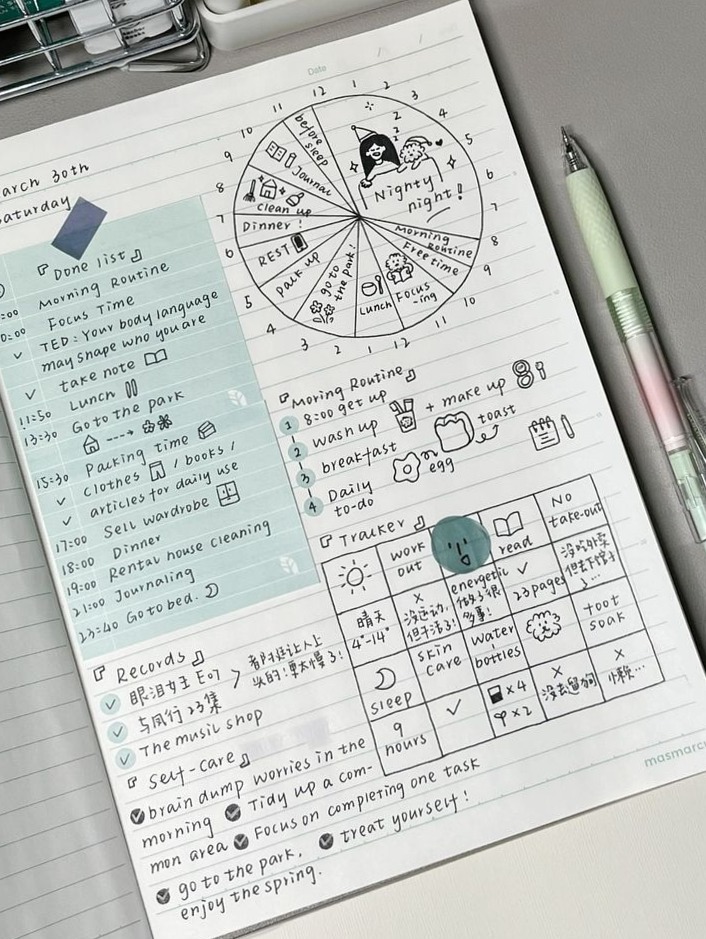 Date / /
arch 30th
Saturday
『Done list』
:00 Morning Routine
0:00 Focus Time
✓ TED: Your body language
may shape who you are
✓ take note
11:50 Lunch
13:30 Go to the park
15:30 Packing time
✓ clothes / books /
✓ articles for daily use
17:00 Sell wardrobe
18:00 Dinner
19:00 Rental house cleaning
21:00 Journaling
23:40 Go to bed.
12 1 2 3 4 5 6 7 8 9 10 11 12 1 2 3 4 5 6 7 8 9 10 11
z z z
Nighty
night!
Morning
Routine
Free time
Focus
-ing
Lunch
go to
the park!
pack up
REST
Dinner!
clean up
Journal
before
sleep
『Moring Routine』
1 8:00 get up
2 wash up + make up
3 breakfast toast
egg
4 Daily
to-do
『Tracker』
work
out
read
No
take-out
晴天
4°-14°
×
没运动,
但干活了!
energetic
做了很
多事!
✓
23 pages
没吃外卖
但去下馆子
了...
sleep
skin
care
water
bottles
foot
soak
9
hours
✓
×4
×2
×
没去遛狗
×
懒...
『Records』
✓ 眼泪女王 E07
✓ 与凤行 23集
> 都挺让人上
头的!
✓ The music shop
『Self-care』
brain dump worries in the
morning Tidy up a com-
mon area Focus on completing one task
go to the park, treat yourself!
enjoy the spring.